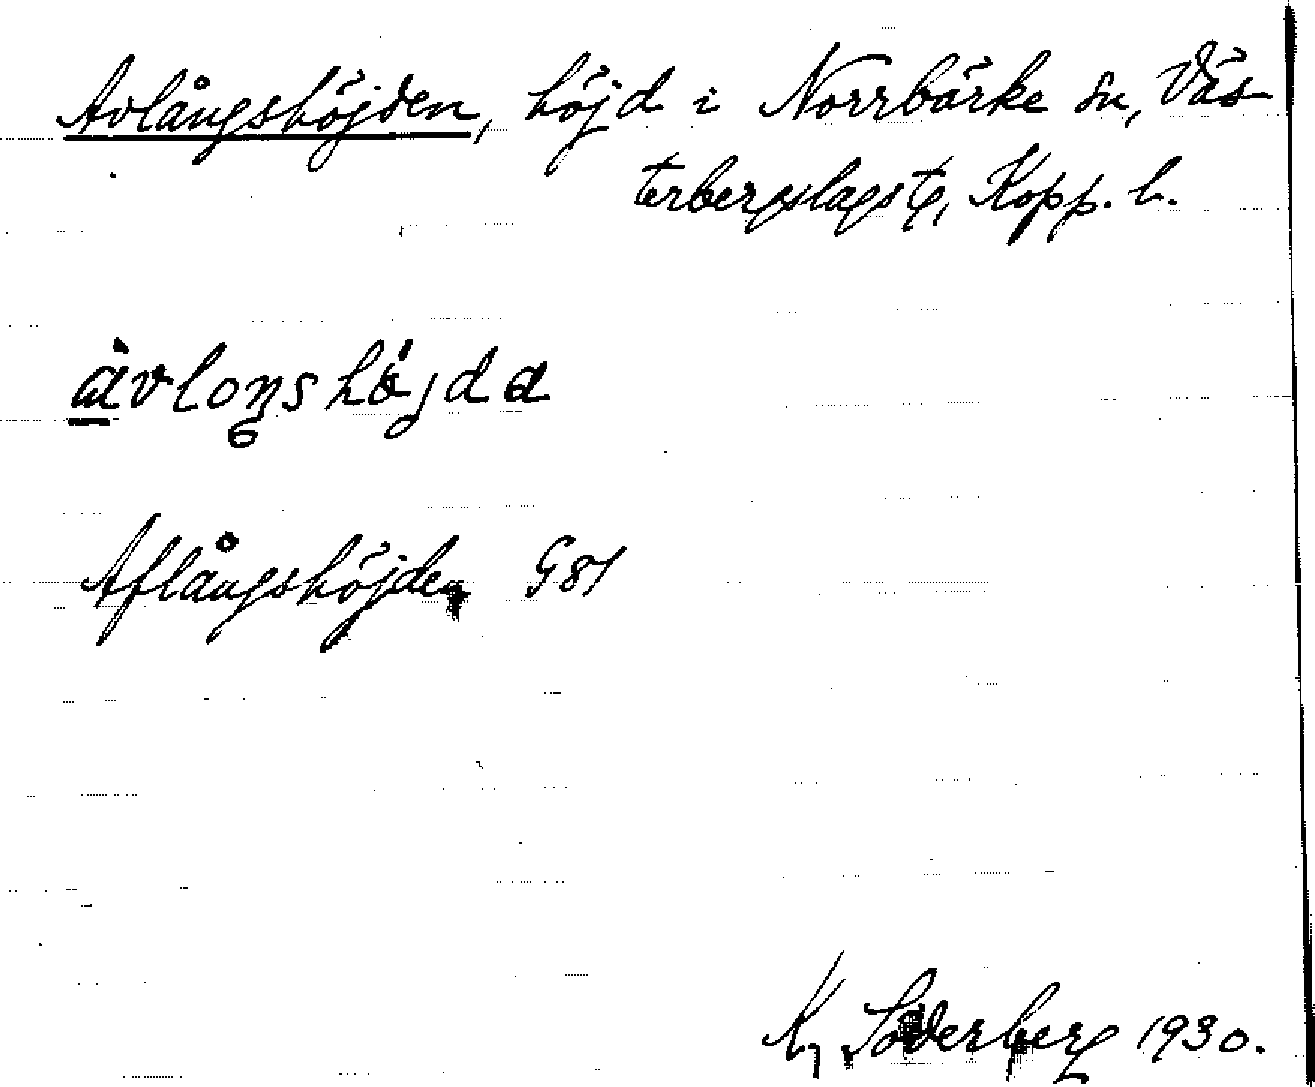 Avlångshöjden, höjd i Norrbärke sn, Väs-
terbergslags tg, Kopp. l.
àvloŋshöjda
Aflångshöjden G81
K, Söderberg 1930.